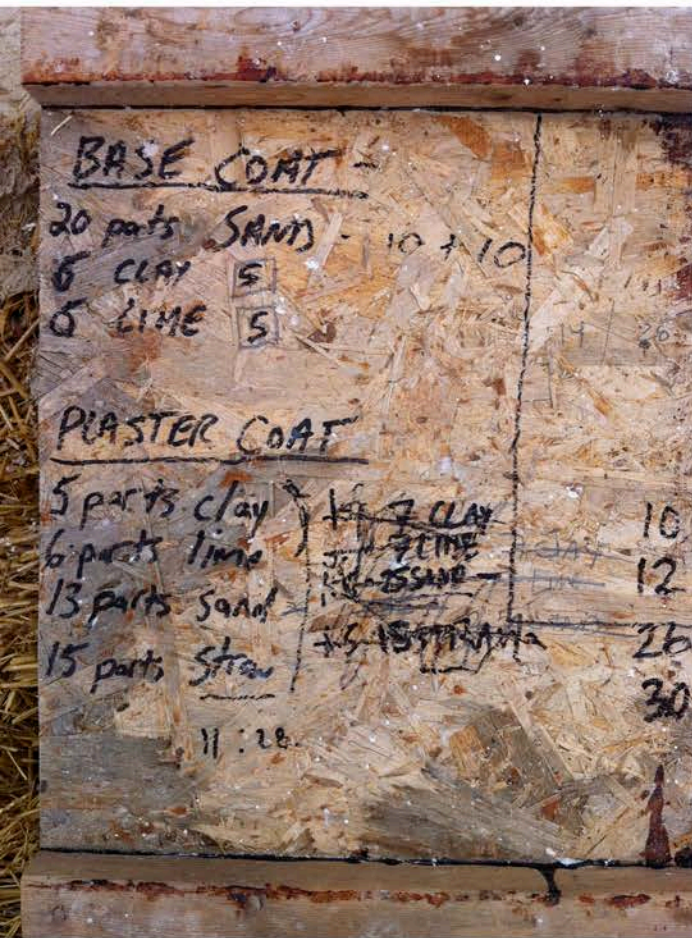 BASE COAT -
20 parts SAND - 10 + 10
6 CLAY 5
6 LIME 5
14 / 26
PLASTER COAT
5 parts clay
6 parts lime
13 parts sand
15 parts straw
11:28
7 CLAY
7 LIME
15 SAND
15 STRAW
10
12
26
30